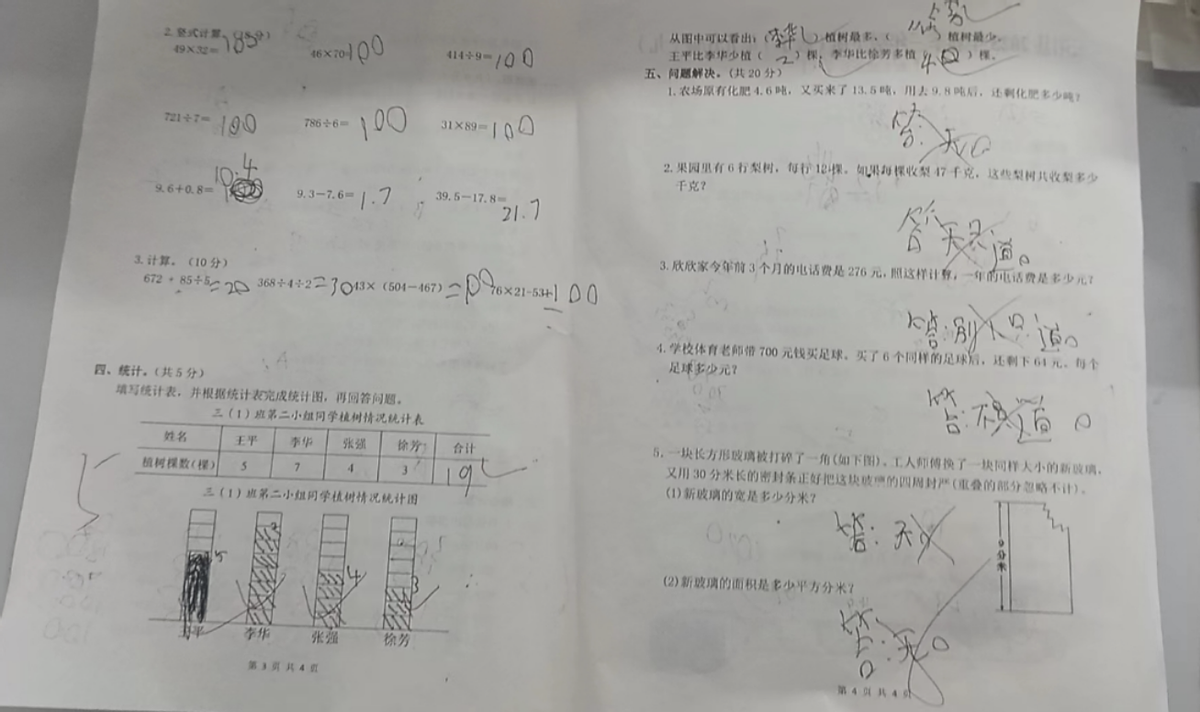 2. 竖式计算。
49×32=
46×70= 100
414÷9= 100
721÷7= 100
786÷6= 100
31×89= 100
9.6+0.8= 10.4
9.3-7.6= 1.7
39.5-17.8= 21.7
3. 计算。(10分)
672 + 85÷5 = 20
368÷4÷2 = 30
43×(504-467) = 100
76×21-53 100
四、统计。(共5分)
填写统计表,并根据统计表完成统计图,再回答问题。
三(1)班第二小组同学植树情况统计表
姓名 王平 李华 张强 徐芳 合计
植树棵数(棵) 5 7 4 3 19
三(1)班第二小组同学植树情况统计图
5
4
3
王平 李华 张强 徐芳
第 3 页 共 4 页
从图中可以看出:(李华)植树最多,( 徐芳 )植树最少。
王平比李华少植( 2 )棵;李华比徐芳多植( 4 )棵。
五、问题解决。(共20分)
1. 农场原有化肥4.6吨,又买来了13.5吨,用去9.8吨后,还剩化肥多少吨?
答:
2. 果园里有6行梨树,每行12棵。如果每棵收梨47千克,这些梨树共收梨多少
千克?
答 道。
3. 欣欣家今年前3个月的电话费是276元,照这样计算,一年的电话费是多少元?
答:别 道。
4. 学校体育老师带700元钱买足球。买了6个同样的足球后,还剩下64元。每个
足球多少元?
答:不 道。
5. 一块长方形玻璃被打碎了一角(如下图)。工人师傅换了一块同样大小的新玻璃,
又用30分米长的密封条正好把这块玻璃的四周封严(重叠的部分忽略不计)。
(1)新玻璃的宽是多少分米?
答:
9分米
(2)新玻璃的面积是多少平方分米?
答:
第 4 页 共 4 页